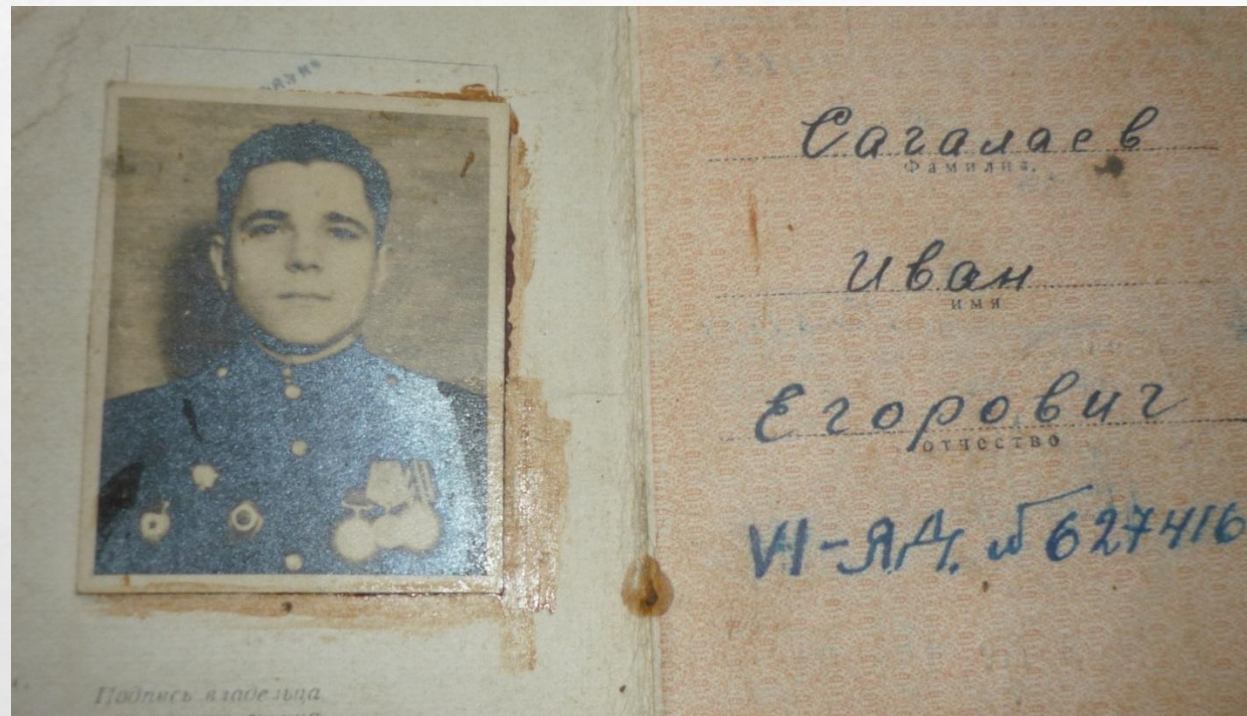 Подпись владельца
Сагалаев
Фамилия.
Иван
имя
Егорович
отчество
VI-ЯД. № 627416